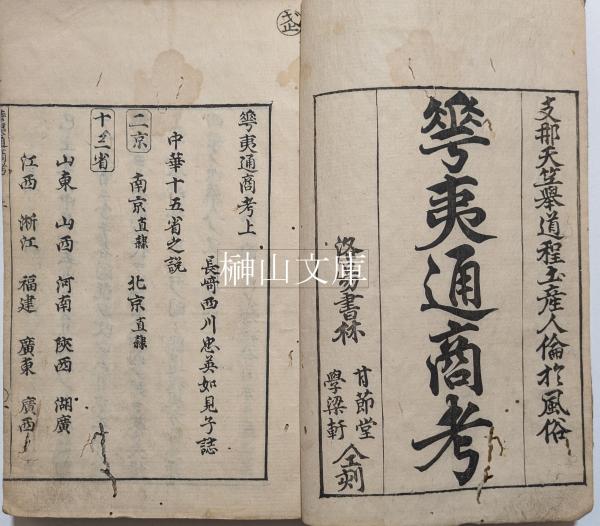 支那天竺舉道程土産人倫於風俗
華夷通商考
洛陽書林
甘節堂
學梁軒
仝刻
榊山文庫
華夷通商考上
長﨑西川忠英如見子誌
中華十五省之説
二京 南京直隸 北京直隸
十三省
山東 山西 河南 陜西 湖廣
江西 浙江 福建 廣東 廣西